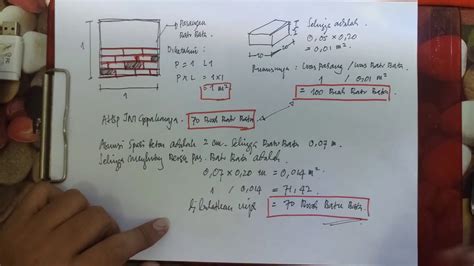 1
1
Pasangan
Batu Bata
Diketahui
P = 1 L1
P x L = 1 x 1
= 1 m²
20
Sehingga adalah
0,05 x 0,20
= 0,01 m².
Luas pasang / Luas Batu Bata
1 / 0,01 m²
= 100 Buah Batu Bata
AHSP SNI 70 Buah Batu Bata
Asumsi Spasi tebal adalah 2 cm - Sehingga Batu Bata 0,07 m.
Sehingga menghitung Pas. Batu Bata adalah
0,07 x 0,20 m = 0,014 m²
1 / 0,014 = 71,42
Di bulatkan = 70 Buah Batu Bata